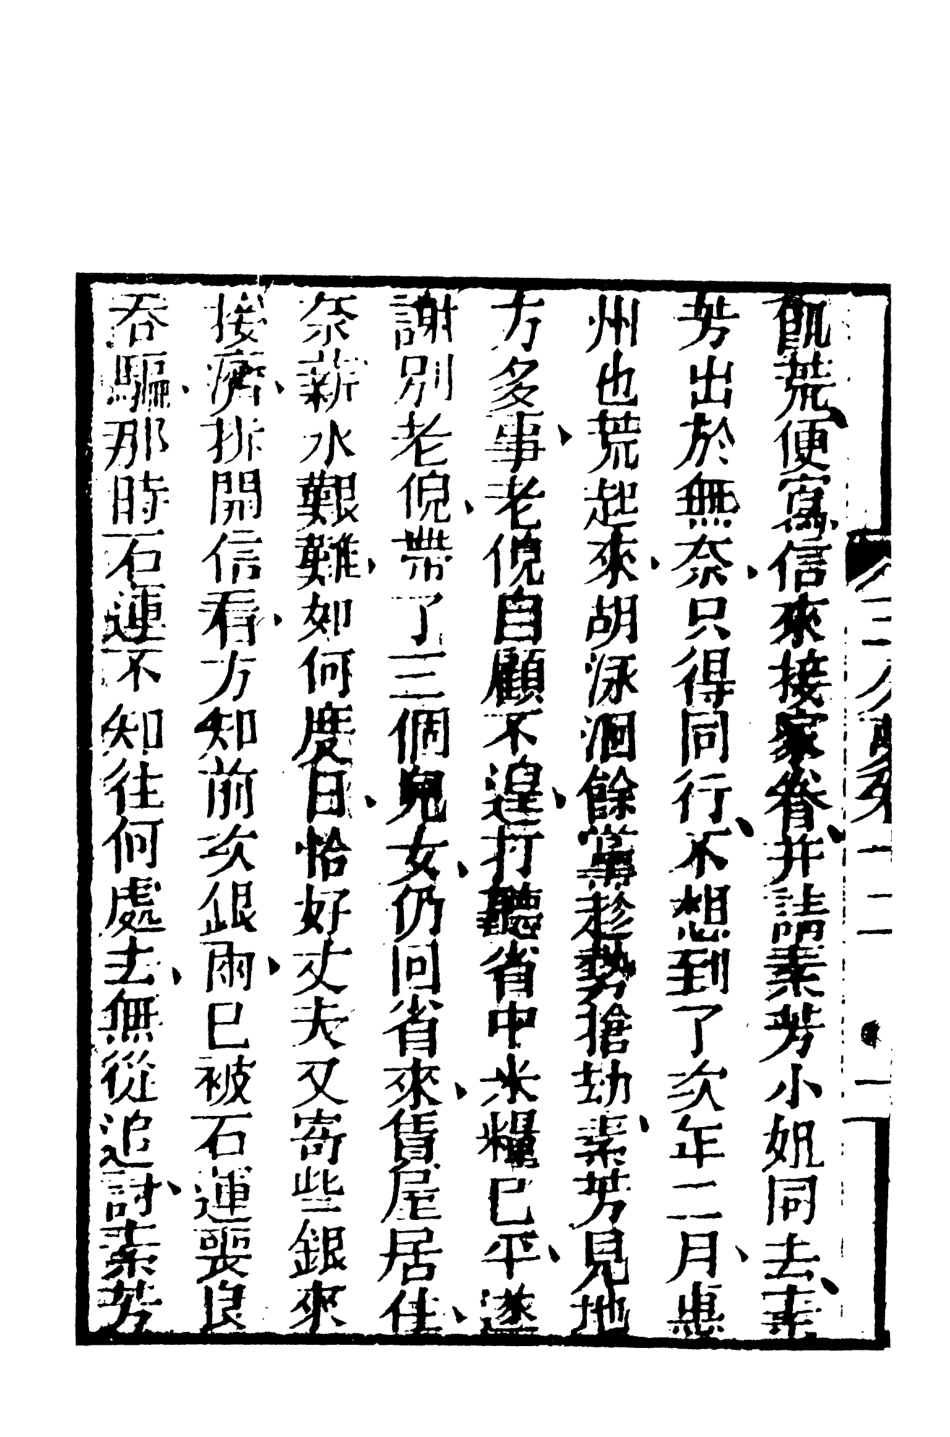 飢荒便寫信來接家眷并請素芳小姐同去素
芳出於無奈只得同行不想到了次年二月惠
州也荒起來胡泳洄餘黨趁勢搶劫素芳見地
方多事老倪自顧不遑打聽省中米糧已平遂
謝別老倪帶了三個兒女仍回省來賃屋居住
奈薪水艱難如何度日恰好丈夫又寄些銀來
接濟拆開信看方知前次銀兩已被石蓮喪良
吞騙那時石蓮不知往何處去無從追討素芳